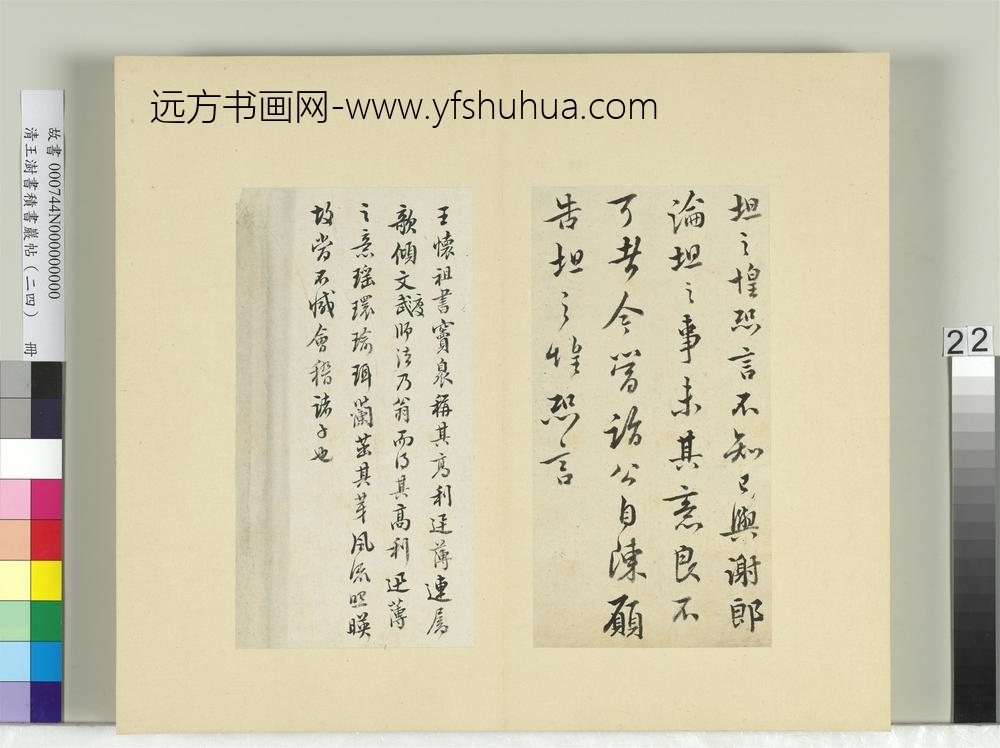 远方书画网-www.yfshuhua.com
坦之惶恐言不知已與謝郎
論坦之事未其意良不
可者今當詣公自陳願
告坦之惶恐言
王懷祖書竇臮稱其高利迅薄連屬
欹傾文武師法乃翁而得其高利迅薄
度
之意瑤環瑜珥蘭茁其芽風流照暎
故當不慽會稽諸子也
故書 000744N000000000
清王澍書積書巖帖（二四） 冊
22